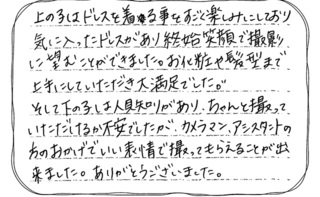 上の子はドレスを着る事をすごく楽しみにしており
気に入ったドレスがあり終始笑顔で撮影
に望むことができました。お化粧や髪型まで
上手にしていただき大満足でした。
そして下の子は人見知りがあり、ちゃんと撮って
いただけるか不安でしたが、カメラマン、アシスタントの
方のおかげでいい表情で撮ってもらえることが出
来ました。ありがとうございました。